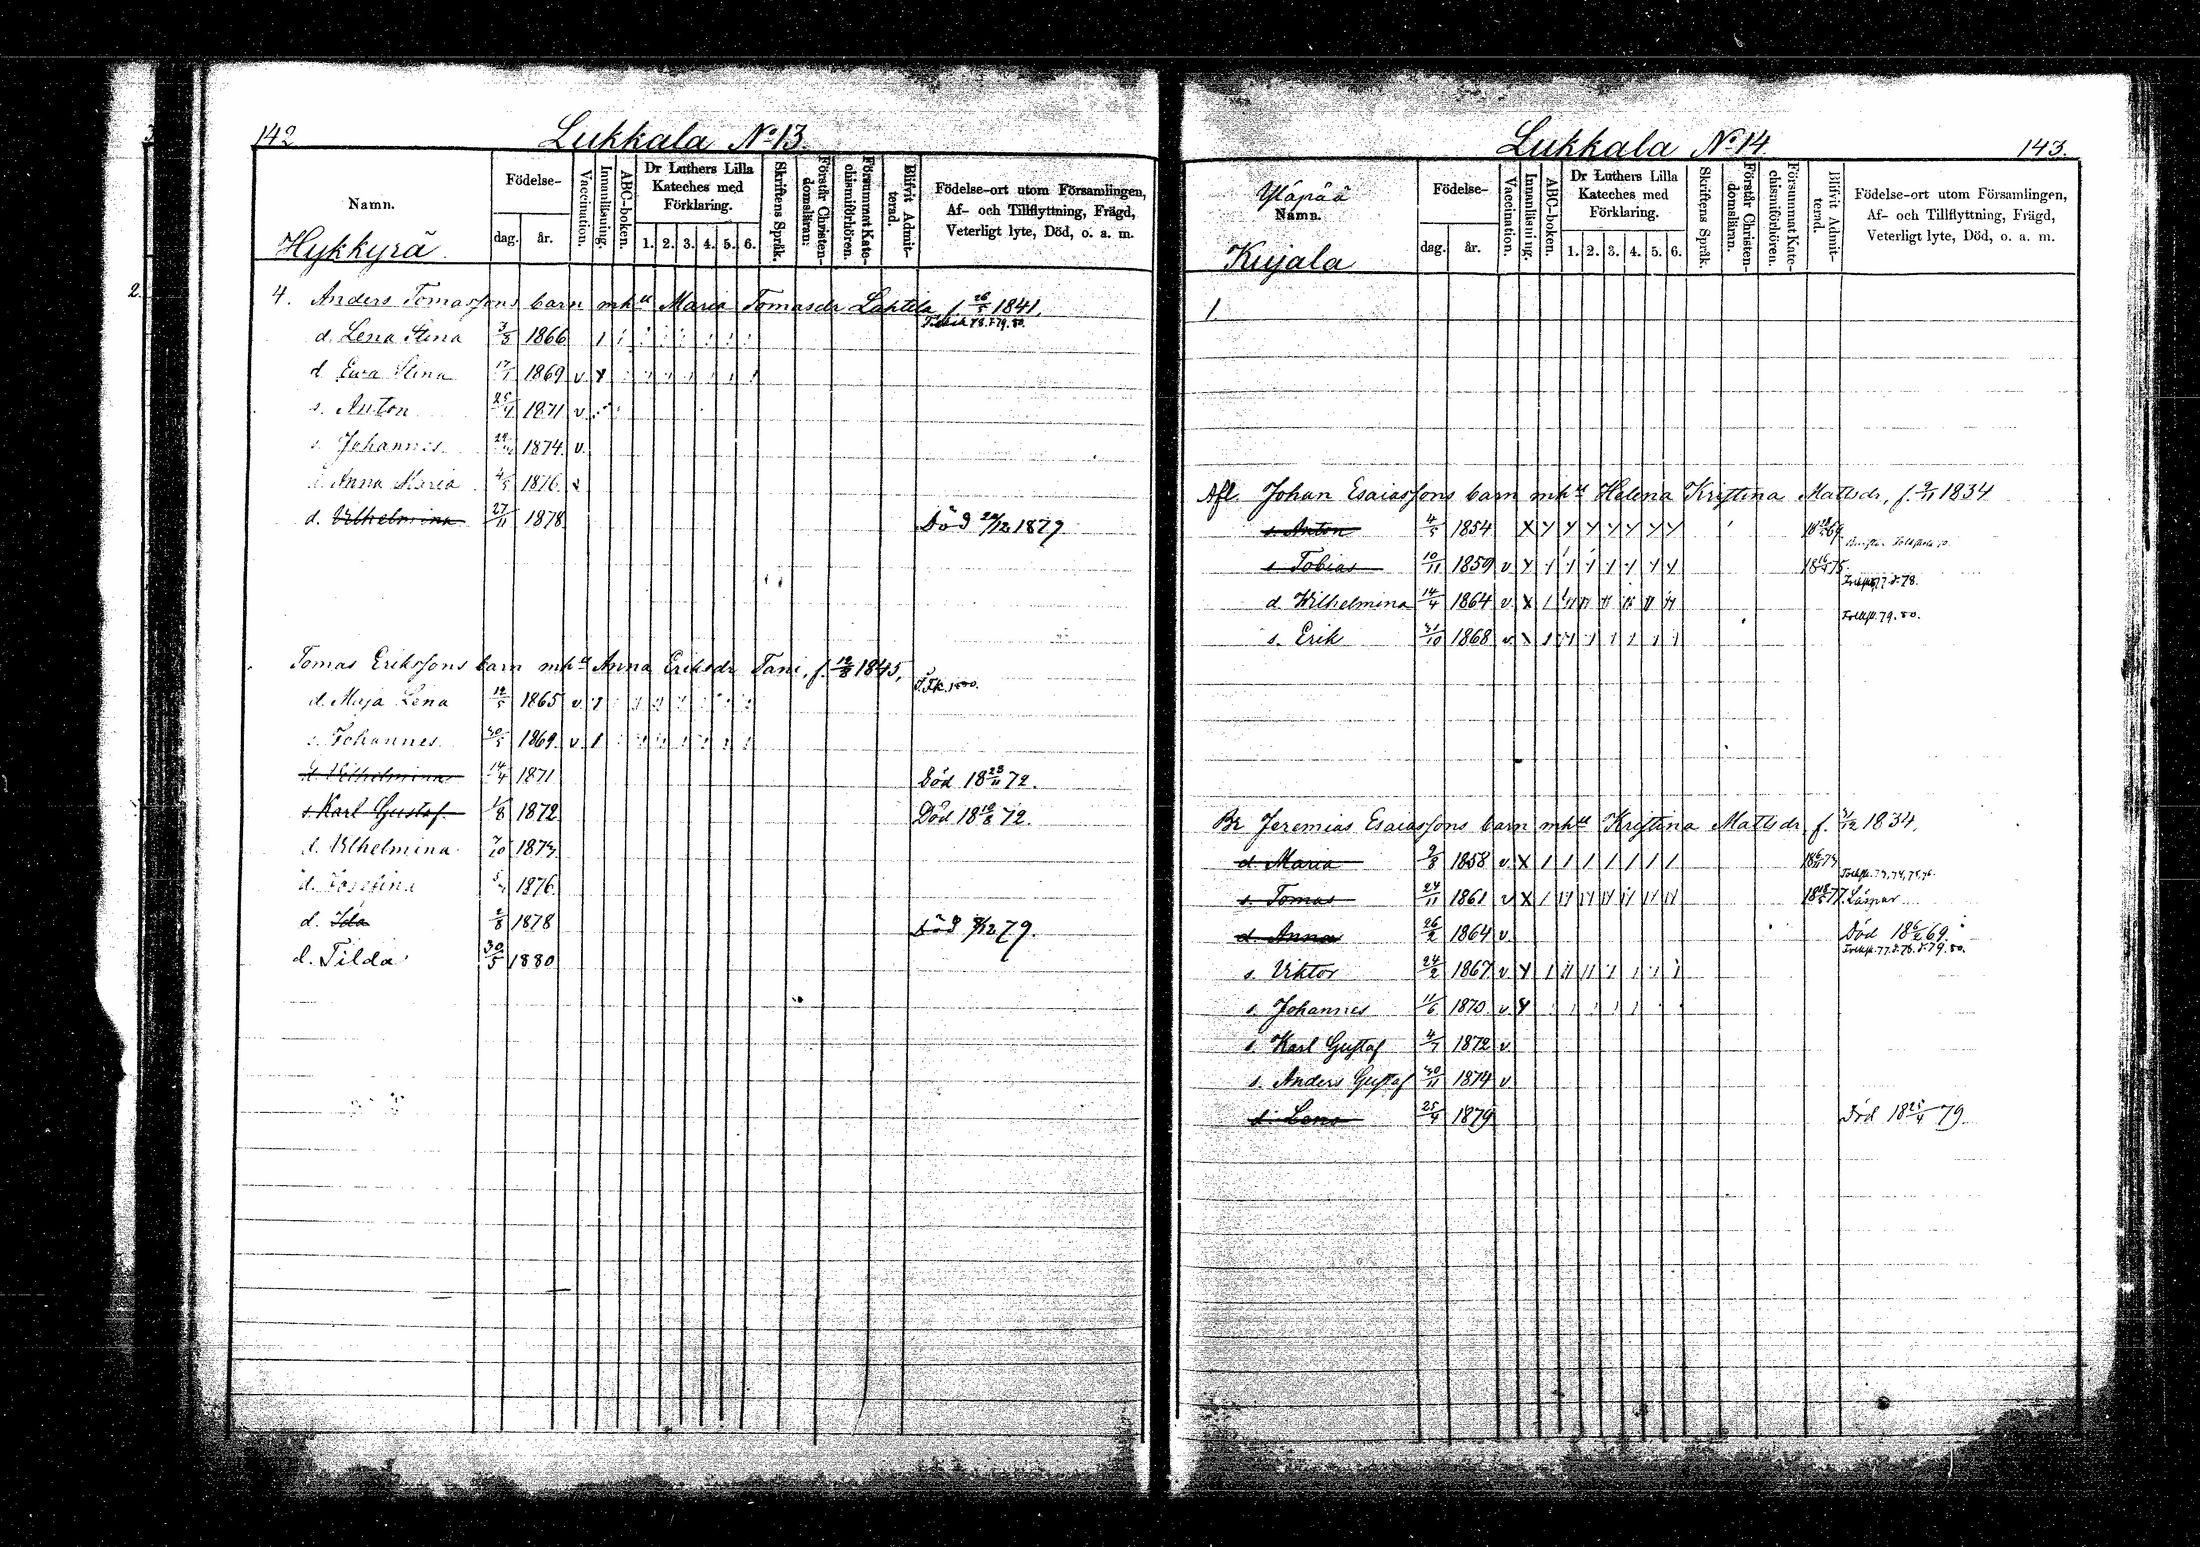 142
Lukkala No 13.
Namn.
Hykkyrä
Födelse-
dag. år.
Vaccination.
Innanläsning.
ABC-boken.
Dr Luthers Lilla
Kateches med
Förklaring.
1. 2. 3. 4. 5. 6.
Skriftens Språk.
Förstår Christen-
domsläran.
Försummat Kate-
chismiförhören.
Blifvit Admit-
terad.
Födelse-ort utom Församlingen,
Af- och Tillflyttning, Frägd,
Veterligt lyte, Död, o. a. m.
4. Anders Tomassons barn mhu Maria Tomasdr Lahtela, f. 26/5 1841.
d. Lena Stina 3/3 1866
d. Ewa Stina 17/1 1869 v
s. Anton 25/4 1871 v
s. Johannes 1874 v
d. Anna Maria 4/5 1876 v
d. Vilhelmina 27/11 1878 Död 1879
Tomas Erikssons barn mhu Anna Eriksdr Tani, f. 1845,
d. Maja Lena 12/5 1865 v
s. Johannes 30/5 1869 v
d. Vilhelmina 14/4 1871 Död 18 23/11 72.
s. Karl Gustaf 1/8 1872 Död 18 10/8 72.
d. Vilhelmina 7/10 1873
d. Josefina 1876
d. Ida 2/8 1878 Död 79.
d. Tilda 30/5 1880
Lukkala No 14.
143.
Yläpää
Namn.
Kujala
Födelse-
dag. år.
Vaccination.
Innanläsning.
ABC-boken.
Dr Luthers Lilla
Kateches med
Förklaring.
1. 2. 3. 4. 5. 6.
Skriftens Språk.
Förstår Christen-
domsläran.
Försummat Kate-
chismiförhören.
Blifvit Admit-
terad.
Födelse-ort utom Församlingen,
Af- och Tillflyttning, Frägd,
Veterligt lyte, Död, o. a. m.
1
Afl. Johan Esaiassons barn mhu Helena Kristina Mattsdr, f. 9/11 1834
s. Anton 4/5 1854
s. Tobias 10/11 1859 v
d. Wilhelmina 14/4 1864 v
s. Erik 31/10 1868 v
Br Jeremias Esaiassons barn mhu Kristina Mattsdr f. 1834.
d. Maria 9/8 1858 v
s. Tomas 24/11 1861 v
d. Anna 26/2 1864 v Död 18 6/2 69
s. Viktor 24/2 1867 v
s. Johannes 11/6 1870 v
s. Karl Gustaf 4/7 1872 v
s. Anders Gustaf 30/11 1874 v
d. Lena 25/4 1879 Död 18 25/4 79.